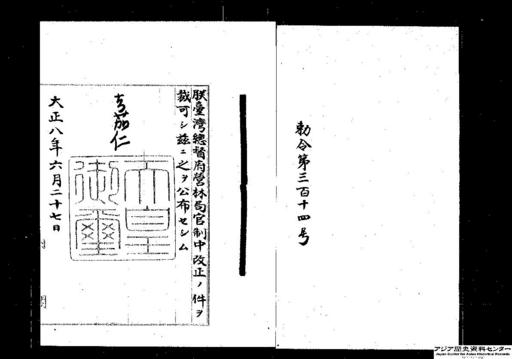 勅令第三百十四号
朕臺灣總督府営林局官制中改正ノ件ヲ
裁可シ茲ニ之ヲ公布セシム
嘉仁
天皇
御璽
大正八年六月二十七日
アジア歴史資料センター
Japan Center for Asian Historical Records